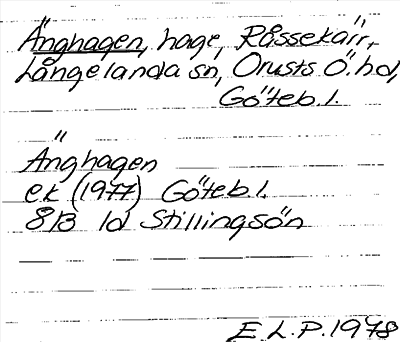 Änghagen, hage, Råssekärr,
Långelanda sn, Orusts Ö. hd,
Göteb. l.
Änghagen
ek (1977) Göteb. l.
8B 1d Stillingsön
E. L. P. 1978